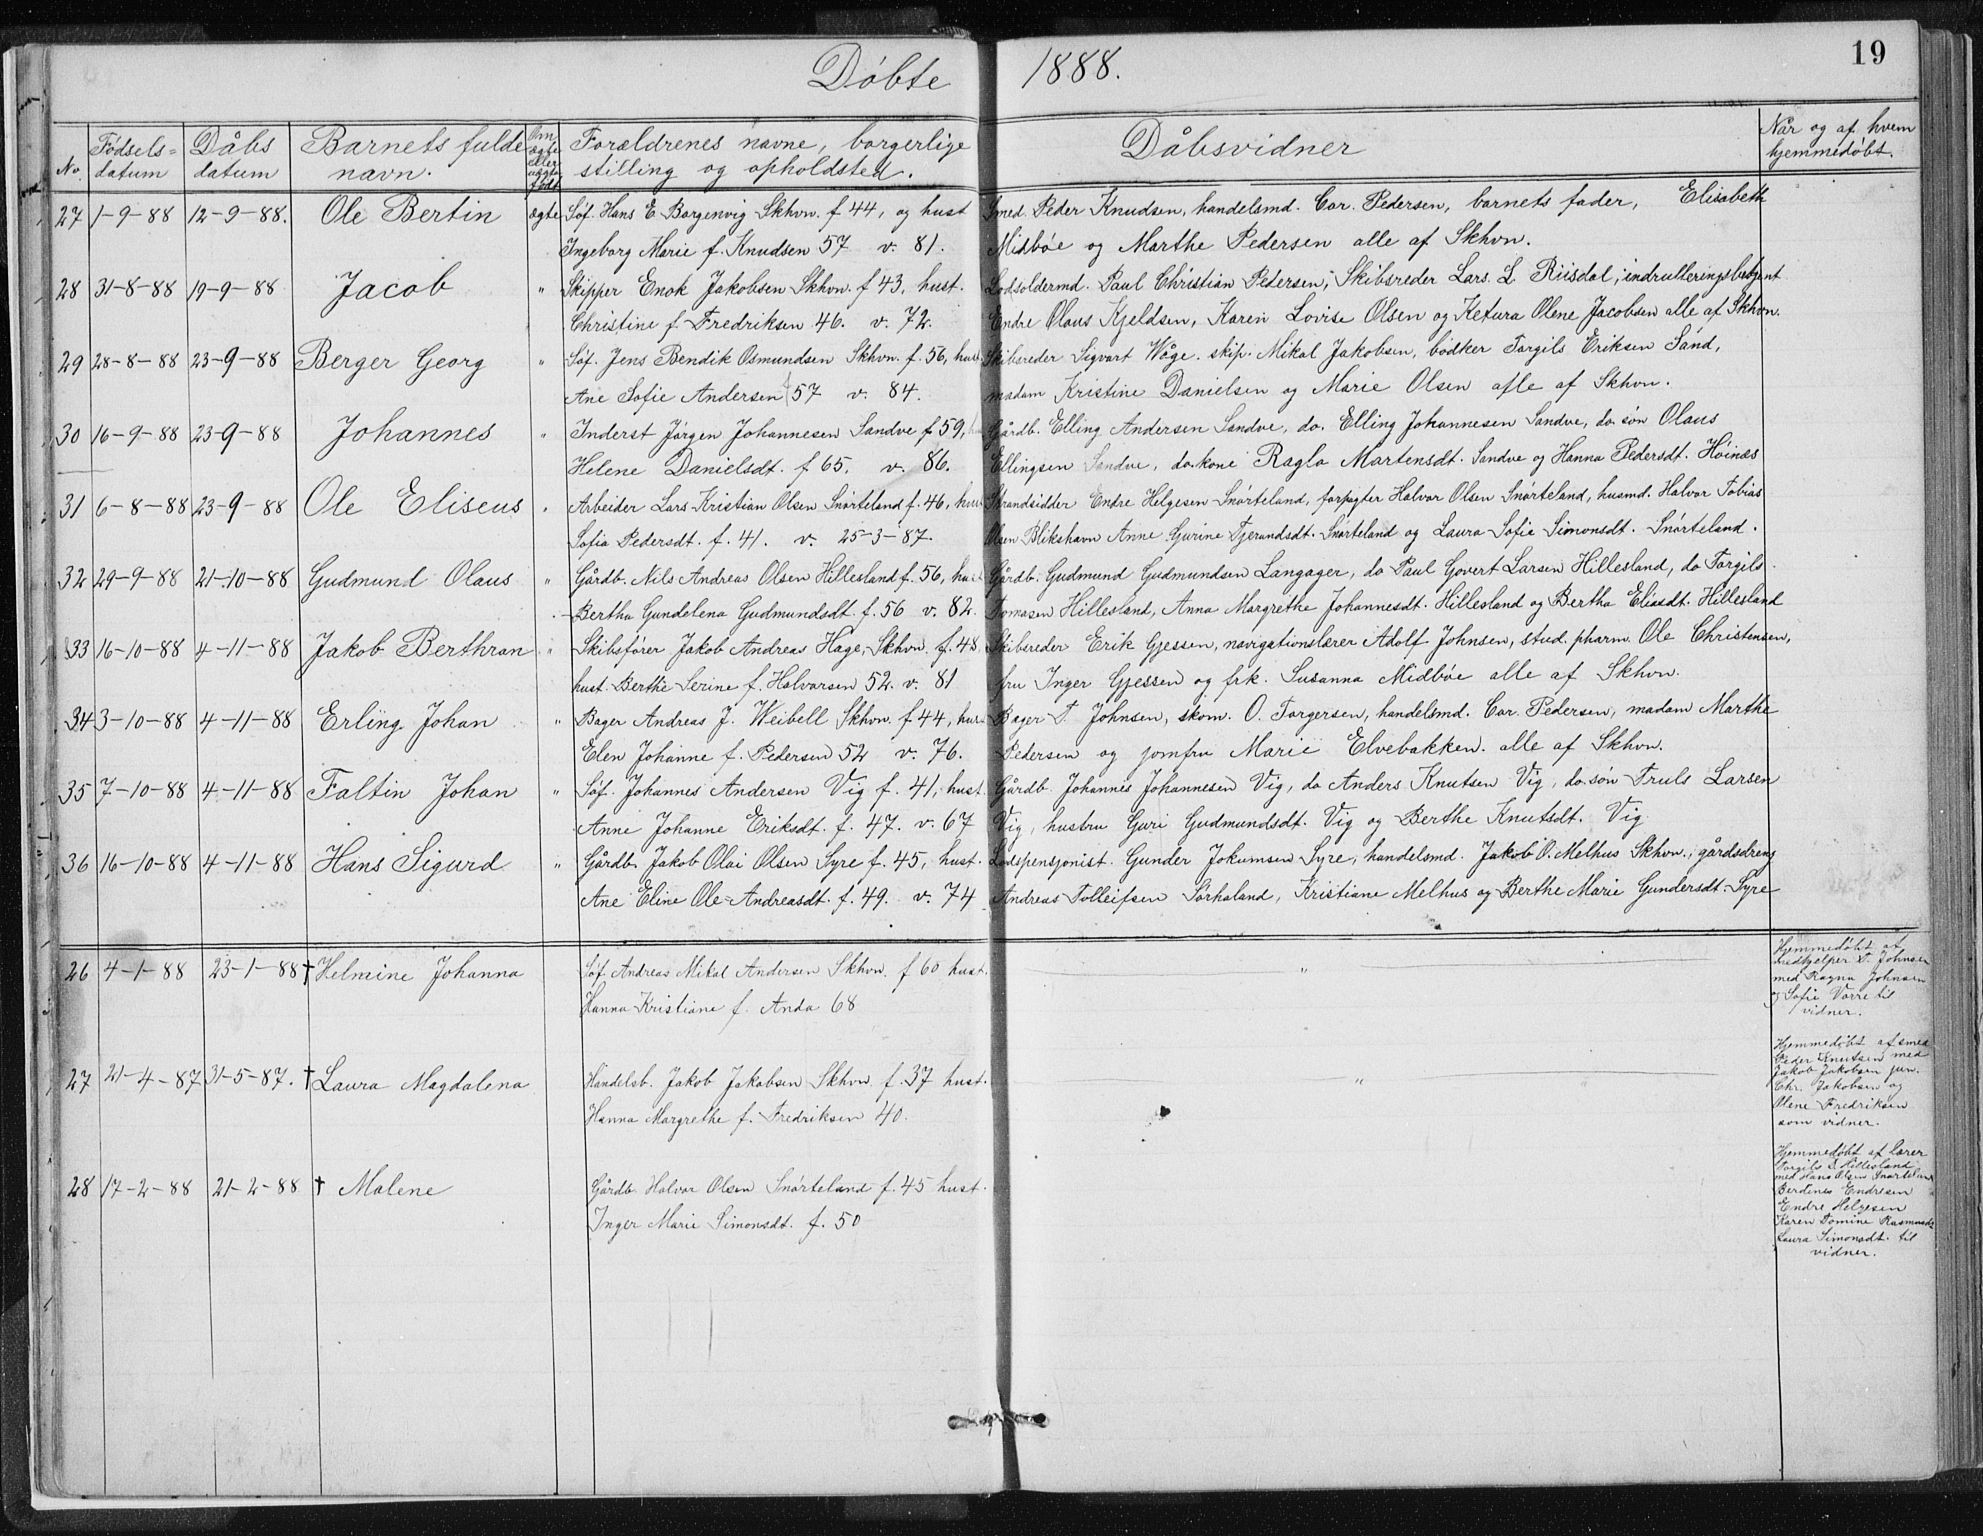 Døbte 1888. 19
No. Fødsels= datum Dåbs datum Barnets fulde navn. Om ægte eller uægte født Forældrenes navne, borgerlige stilling og opholdsted. Dåbsvidner Når og af hvem hjemmedøbt.
27 1-9-88 12-9-88. Ole Bertin ægte Søf. Hans E Borgenvig Skhvn. f 44, og hust Smed. Peder Knudsen, handelsmd. Cor. Pedersen, barnets fader, Elisabeth
Ingeborg Marie f. Knudsen 57 v. 81. Midbøe og Marthe Pedersen alle af Skhvn.
28 31-8-88 19-9-88 Jacob " Skipper Enok Jakobsen Skhvn. f 43, hust. Lodsoldermd. Paul Christian Pedersen, Skibsreder Lars. L Riisdal, indrulleringsbetjent
Christine f. Fredriksen 46. v. 72. Endre Olaus Kjeldsen, Karen Lovise Olsen og Ketura Olene Jacobsen alle af Skhvn.
29 28-8-88 23-9-88 Berger Georg " Søf. Jens Bendik Osmundsen Skhvn. f. 56, hust Skibsreder Sigvart Våge. skip. Mikal Jakobsen, bødker Torgils Eriksen Sand,
Ane Sofie Andersen 57 v. 84. madam Kristine Danielsen og Marie Olsen alle af Skhvn.
30 16-9-88 23-9-88 Johannes " Inderst Jørgen Johannesen Sandve f 59, Gårdb. Elling Andersen Sandve, do. Elling Johannesen Sandve, do. søn Olaus
Helene Danielsdt. f 65. v. 86. Ellingsen Sandve, do. kone Ragla Martensdt. Sandve og Hanna Pedersdt. Høinæs
31 6-8-88 23-9-88 Ole Eliseus " Arbeider Lars Kristian Olsen Snørteland f. 46, hust Strandsidder Endre Helgesen Snørteland, forpagter Halvor Olsen Snørteland, husmd. Halvor Tobias
Sofia Pedersdt. f. 41. v. 25-3-87. Olsen Blikshavn Anne Gurine Tjerandsdt. Snørteland og Laura Sofie Simonsdt. Snørteland.
32 29-9-88 21-10-88 Gudmund Olaus " Gårdb. Nils Andreas Olsen Hillesland f. 56, hust Gårdb. Gudmund Gudmundsen Langager, do Paul Govert Larsen Hillesland, do Torgils
Bertha Gundelena Gudmundsdt. f. 56 v. 82. Tomasen Hillesland, Anna Margrethe Johannesdt. Hillesland og Bertha Eliasdt. Hillesland
33 16-10-88 4-11-88 Jakob Berthran " Skibsfører Jakob Andreas Hage, Skhvn. f. 48, Skibsreder Erik Gjessen, navigationslærer Adolf Johnsen, stud. pharm. Ole Christensen,
hust. Berthe Serine f. Halvorsen 52. v. 81 fru Inger Gjessen og frk. Susanna Midbøe alle af Skhvn.
34 3-10-88 4-11-88 Erling Johan " Bager Andreas J. Weibell Skhvn. f 44, hust. Bager T. Johnsen, skom. O. Torgersen, handelsmd. Cor. Pedersen, madam Marthe
Elen Johanne f. Pedersen 52 v. 76. Pedersen og jomfru Marie Elvebakken. alle af Skhvn.
35 7-10-88 4-11-88 Faltin Johan " Søf. Johannes Andersen Vig f. 41, hust. Gårdb. Johannes Johannesen Vig, do Anders Knutsen Vig, do. søn Truls Larsen
Anne Johanne Eriksdt. f. 47. v. 67 Vig, hustru Guri Gudmundsdt. Vig og Berthe Knutsdt. Vig
36 16-10-88 4-11-88 Hans Sigurd " Gårdb. Jakob Olai Olsen Syre f. 45, hust. Lodspensjonist. Gunder Jokumsen Syre, handelsmd. Jakob O. Melhus Skhvn., gårdsdreng
Ane Eline Ole-Andreasdt. f. 49. v. 74 Andreas Tolleifsen Sørhaland, Kristiane Melhus og Berthe Marie Gundersdt. Syre
26 4-1-88 23-1-88 † Helmine Johanna Søf. Andreas Mikal Andersen Skhvn. f 60 hust. " Hjemmedøbt af
Hanna Kristiane f. Anda 68 medhjelper T. Johnsen
med Ragna Johnsen
og Sofie Vorre til
vidner.
27 21-4-87 31-5-87. † Laura Magdalena Handelsb. Jakob Jakobsen Skhvn. f. 37 hust. " Hjemmedøbt af smed
Hanna Margrethe f. Fredriksen 40. Peder Knutsen med
Jakob Jakobsen jun.
Chr. Jakobsen og
Olene Fredriksen
som vidner.
28 17-2-88 21-2-88 † Malene Gårdb. Halvor Olsen Snørteland f. 45 hust. Hjemmedøbt af lærer
Inger Marie Simonsdt. f. 50 Torgils T. Hillesland
med Hans Olsen Snørteland
Berdines Endresen
Endre Helgesen
Karen Tomine Rasmusdt.
Laura Simonsdt. til
vidner.